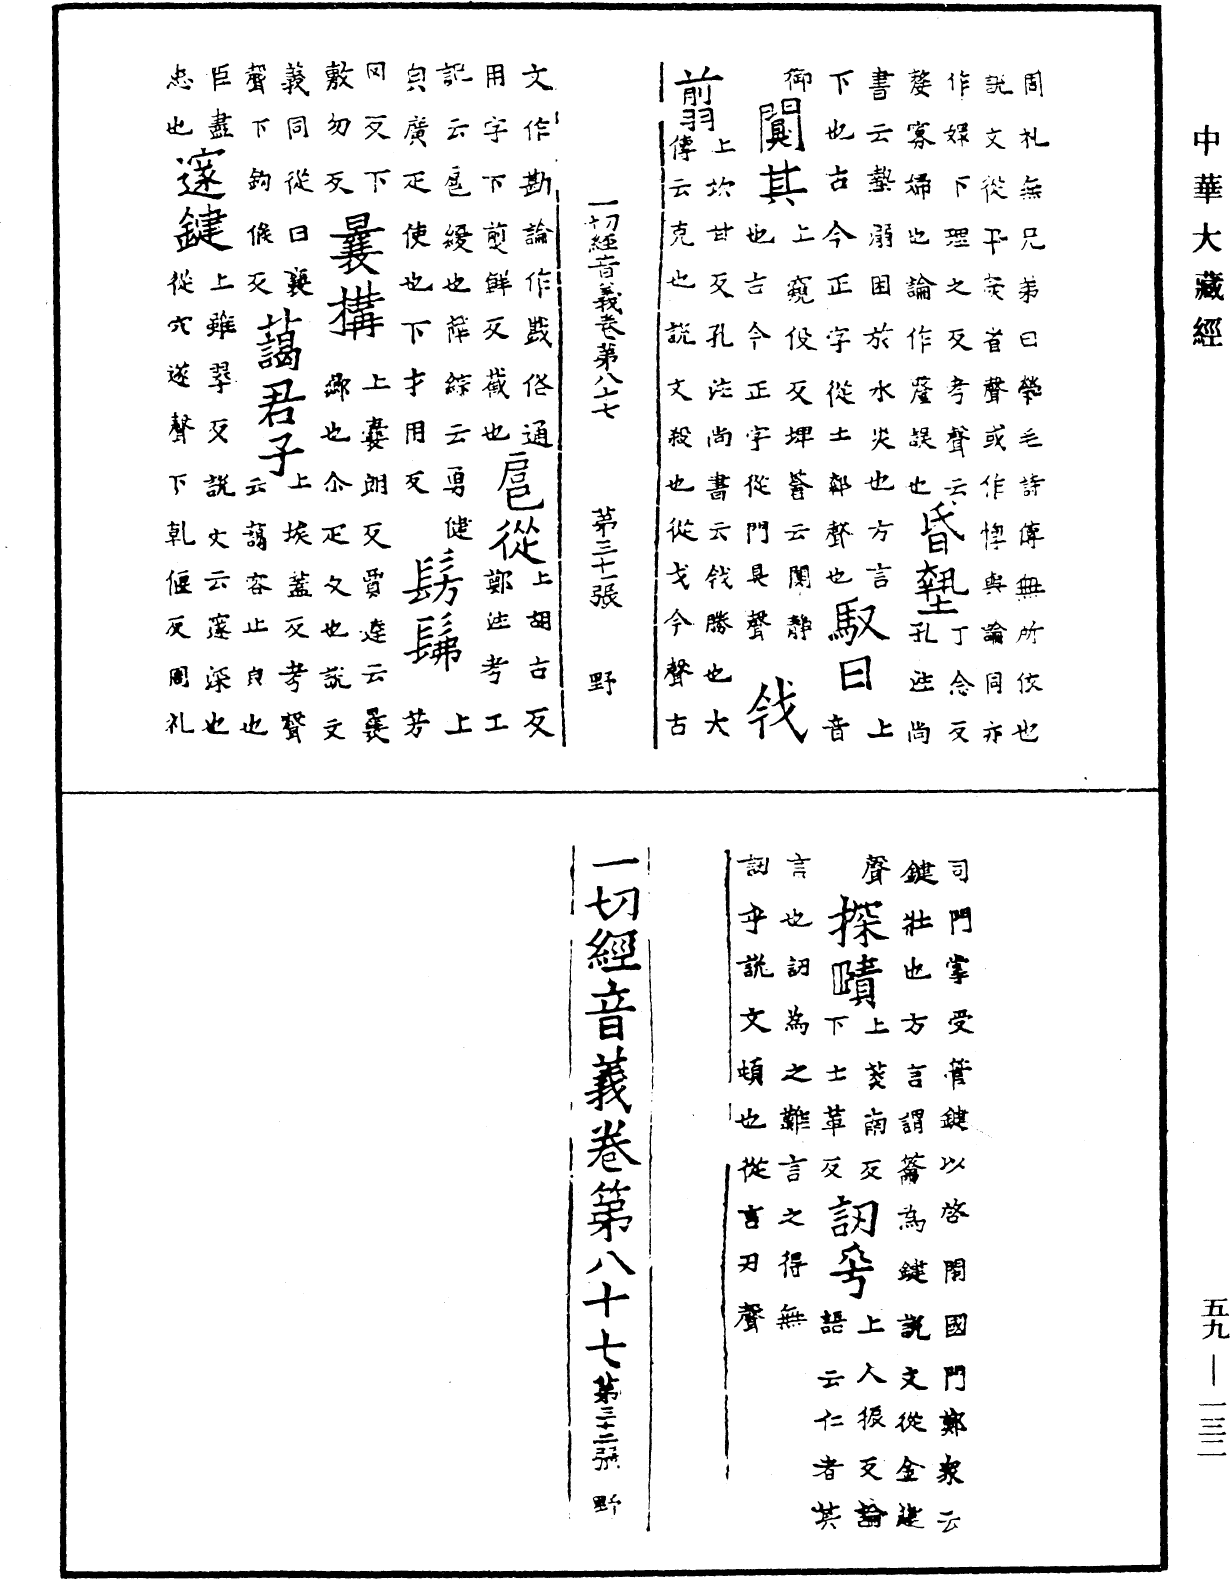 中華大藏經
周礼無兄弟曰㷀毛詩傳無所依也
說文從卂㷀省聲或作惸與論同亦
作嫘下理之反考聲云
嫠寡婦也論作𨤲誤也昏墊丁念反孔注尚
書云墊溺困於水灾也方言
下也古今正字從土郣聲也馭曰上音
御
闃其上窺伇反埤蒼云闃靜
也古今正字從門狊聲
戗
翦上坎甘反孔注尚書云戗勝也大
傳云克也說文殺也從戈今聲古
一切經音義卷第八十七 第三十一張 野
文作㪡論作戡俗通
用字下煎鮮反截也扈從上胡古反
鄭注考工
記云扈緩也薛綜云勇健
皃廣疋使也下才用反髣髴上芳
冈反下
敷勿反曩構上囊朗反賈逵云曩
鄉也尒疋久也說文
義同從日襄
聲下鉤候反藹君子上埃蓋反考聲
云藹容止皃也
臣盡
忠也邃鍵上雖翠反說文云邃深也
從穴遂聲下乾偃反周礼
司門掌受管鍵以啓閇國門鄭衆云
鍵壯也方言謂籥為鍵說文從金建
聲探賾上荅南反
下士革反訒乎上人振反論
語云仁者其
言也訒為之難言之得無
訒乎說文頓也從言刃聲
一切經音義卷第八十七 第三十二張 野
五九—一三二